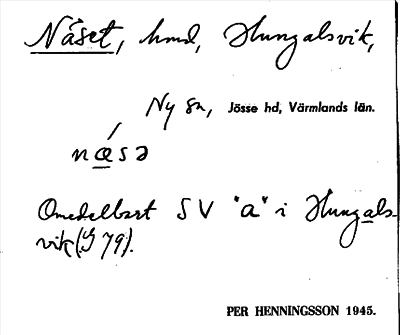 Näset, hmd, Hungalsvik,
Ny sn, Jösse hd, Värmlands län.
næ´sə
Omedelbart SV "a" i Hungals-
vik (Y 79).
PER HENNINGSSON 1945.